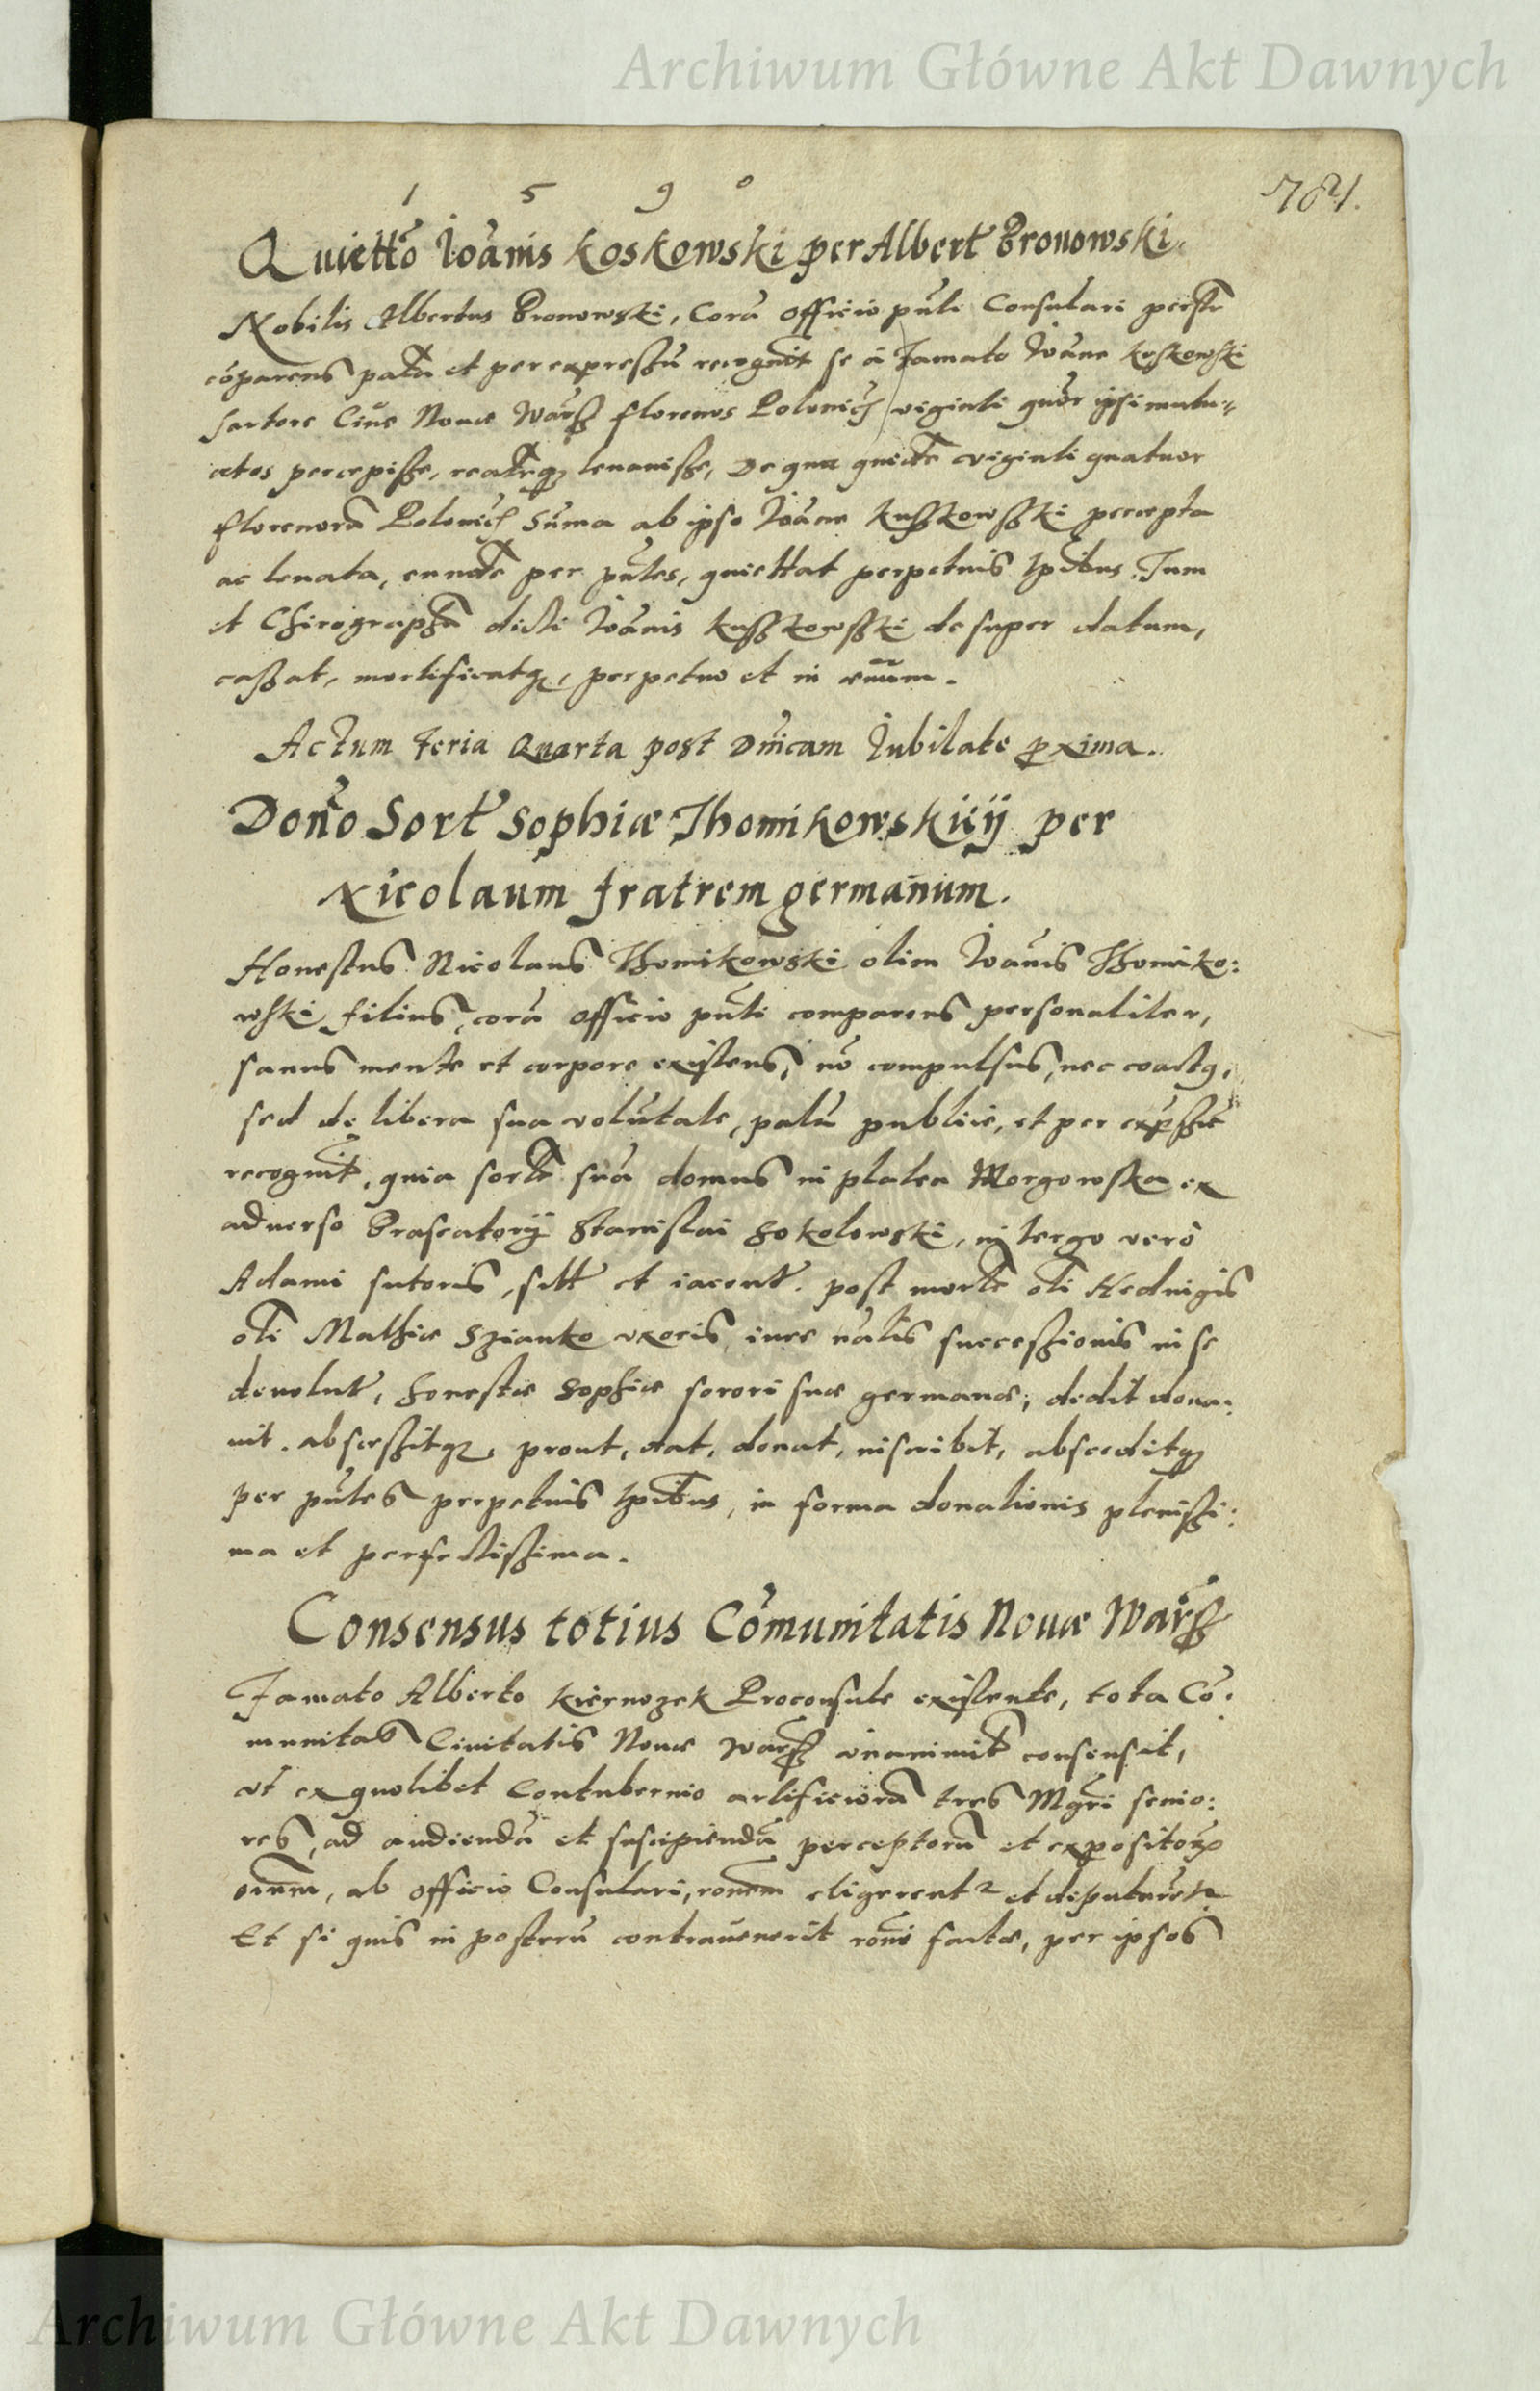 Archiwum Główne Akt Dawnych
1 5 9 0
781.
Quiettõ Ioãnis Koskowski per Albert Bronowski.
Nobilis Albertus Bronowski, Corã Officio pñti Consulari perstr
cõparens palã et per expressũ recognit se á Famato Ioãne Koskowski
sartore Ciue Nouæ Warß florenos Polonicz viginti quõr ipsi mutu-
atos percepisse, realrqz leuauisse, De qua quidẽ viginti quatuor
florenorũ Polonicz Sũma ab ipso Ioãne Kußkowßki percepta
ac leuata, eundẽ per pñtes, quiettat perpetuis tpibus. Tum
et Chirographũ dicti Ioãnis Kußkowßki de super datum,
cassat, mortificatqz, perpetuo et in æuum.
Actum Feria Quarta post Dnicam Iubilate proxima.
Donõ Sort Sophiæ Thomikowskiẏ per
Nicolaum fratrem germanum.
Honestus Nicolaus Thomikowski olim Ioãnis Thomiko:
wski filius, corã Officio pñti comparens personaliter,
sanus mente et corpore existens, nõ compulsus, nec coactq,
sed de libera sua volũtate, palã publice, et per exprßũ
recognit, quia sortẽ suã domus in platea Morgowska ex
aduerso Braseatorij Stanislai Sokolowski, in tergo verò
Adami sutoris, sitt et iacent. post mortẽ oli Heduigis
oli Mathiæ Szianko vxoris, iure nãlis successionis in se
deuolut, honestæ Sophiæ sorori suæ germanæ, dedit dona:
uit. abscessitqz, prout, dat, donat, inscribit, absceditqz
per pñtes perpetuis tpibus, in forma donationis plenissi:
ma et perfectissima.
Consensus totius Cõmunitatis Nouæ Warß
Famato Alberto Kiernozek Proconsule existente, tota Cõ:
munitas Ciuitatis Nouæ Warß vnanimit consensit,
vt ex quolibet Contubernio artificiorũ tres Mgri senio:
res, ad audiendũ et suscipiendũ perceptorũ et expositorũ
omnem, ab Officio Consulari, ronem eligerent et deputarent
Et si quis in posterũ contrauenerit roni factæ, per ipsos
Archiwum Główne Akt Dawnych